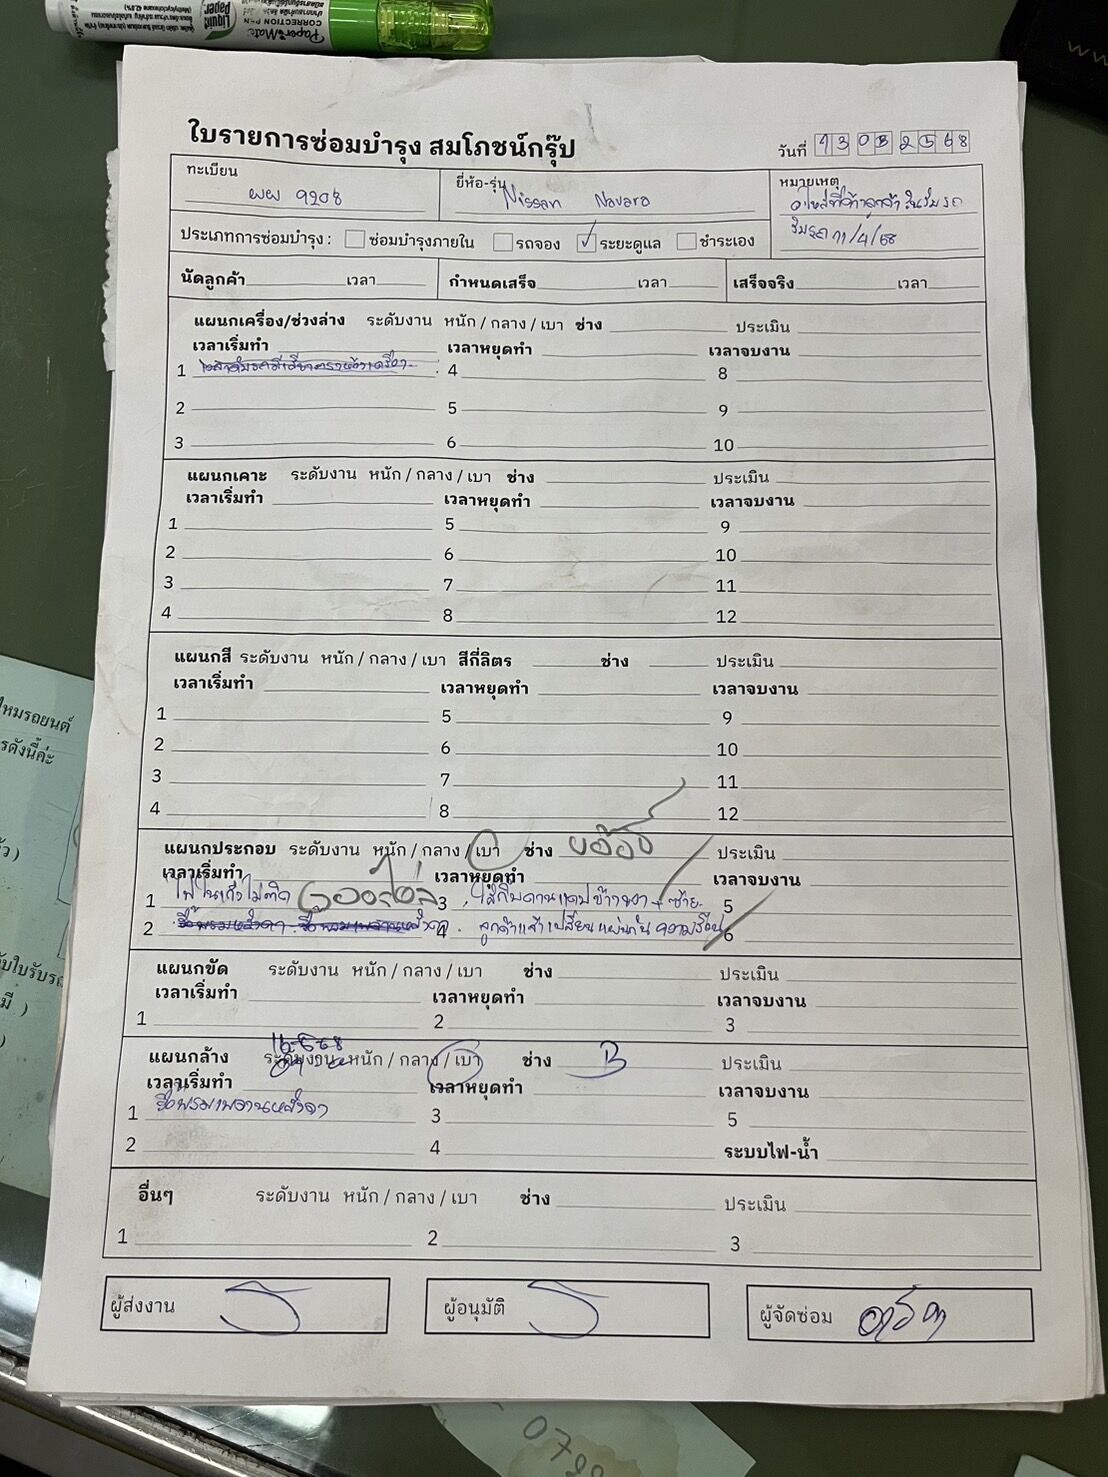 Paper Mate
Liquid Paper
CORRECTION PEN
ใบรายการซ่อมบำรุง สมโภชน์กรุ๊ป
วันที่ 13 03 2568
ทะเบียน
ผผ 9208
ยี่ห้อ-รุ่น
Nissan Navara
หมายเหตุ
รับรถ 11/4/68
ประเภทการซ่อมบำรุง : ซ่อมบำรุงภายใน รถจอง ✓ ระยะดูแล ชำระเอง
นัดลูกค้า เวลา กำหนดเสร็จ เวลา เสร็จจริง เวลา
แผนกเครื่อง/ช่วงล่าง ระดับงาน หนัก / กลาง / เบา ช่าง ประเมิน
เวลาเริ่มทำ เวลาหยุดทำ เวลาจบงาน
1 4 8
2 5 9
3 6 10
แผนกเคาะ ระดับงาน หนัก / กลาง / เบา ช่าง ประเมิน
เวลาเริ่มทำ เวลาหยุดทำ เวลาจบงาน
1 5 9
2 6 10
3 7 11
4 8 12
แผนกสี ระดับงาน หนัก / กลาง / เบา สีกี่ลิตร ช่าง ประเมิน
เวลาเริ่มทำ เวลาหยุดทำ เวลาจบงาน
1 5 9
2 6 10
3 7 11
4 8 12
แผนกประกอบ ระดับงาน หนัก / กลาง / เบา ช่าง ประเมิน
เวลาเริ่มทำ เวลาหยุดทำ เวลาจบงาน
1 ไฟในเก๋งไม่ติด 3 5
2 4 ลูกค้าแจ้งเปลี่ยนแผ่นกันความร้อน 6
แผนกขัด ระดับงาน หนัก / กลาง / เบา ช่าง ประเมิน
เวลาเริ่มทำ เวลาหยุดทำ เวลาจบงาน
1 2 3
แผนกล้าง ระดับงาน หนัก / กลาง / เบา ช่าง B ประเมิน
เวลาเริ่มทำ เวลาหยุดทำ เวลาจบงาน
1 ซื้อพรมเพดานหลังคา 3 5
2 4 ระบบไฟ-น้ำ
อื่นๆ ระดับงาน หนัก / กลาง / เบา ช่าง ประเมิน
1 2 3
ผู้ส่งงาน ผู้อนุมัติ ผู้จัดซ่อม